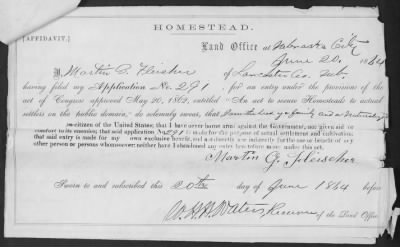 HOMESTEAD.
[AFFIDAVIT.]
Land Office at Nebraska City
June 20, 1864
I, Martin G. Fleischer of Lancaster Co. Neb.
having filed my Application No. 291, for an entry under the provision of the
act of Congress approved May 20, 1862, entitled "An act to secure Homesteads to actual
settlers on the public domain," do solemnly swear, that I am the head of a family and a
citizen of the United States; that I have never borne arms against the Government, or given aid or
comfort to its enemies; that said application No. 291 is made for the purpose of actual settlement and cultivation;
that said entry is made for my own exclusive benefit, and not directly or indirectly for the use or benefit of any
other person or persons whomsoever; neither have I abandoned any entry heretofore made under this act.
Martin G. Fleischer
Sworn to and subscribed this 20th day of June 1864 before
W. H. H. Waters Receiver of the Land Office